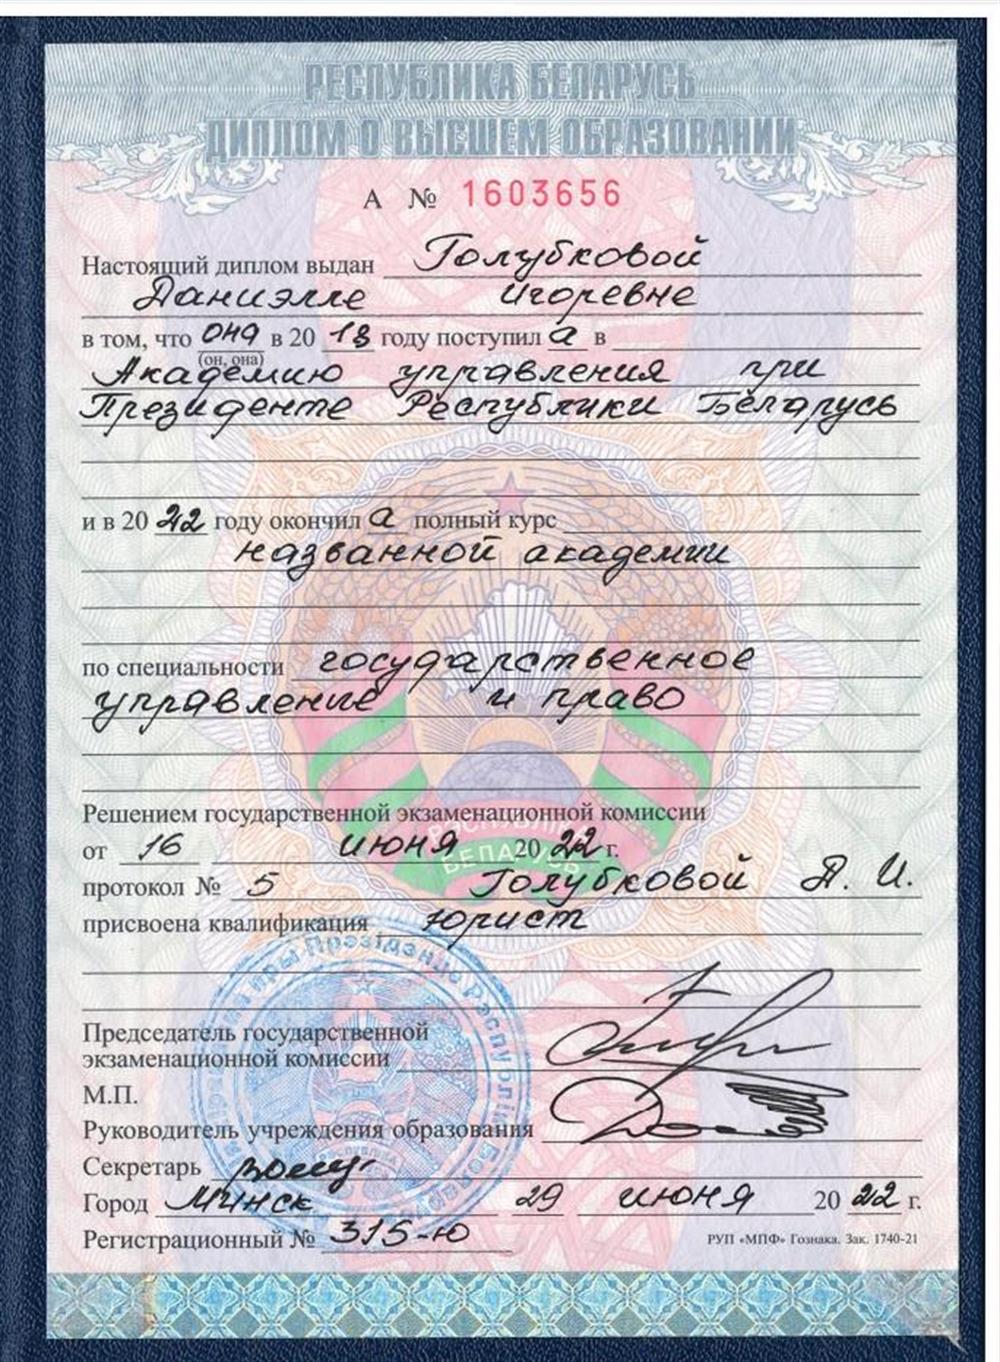 РЕСПУБЛИКА БЕЛАРУСЬ
ДИПЛОМ О ВЫСШЕМ ОБРАЗОВАНИИ
А № 1603656
Настоящий диплом выдан Голубковой
Даниэлле Игоревне
в том, что она в 20 18 году поступил а в
(он, она)
Академию управления при
Президенте Республики Беларусь
и в 20 22 году окончил а полный курс
названной академии
по специальности государственное
управление и право
Решением государственной экзаменационной комиссии
от 16 июня 20 22 г.
протокол № 5 Голубковой Д. И.
присвоена квалификация юрист
Председатель государственной
экзаменационной комиссии
М.П.
Руководитель учреждения образования
Секретарь
Город Минск 29 июня 20 22 г.
Регистрационный № 315-ю
РУП «МПФ» Гознака. Зак. 1740-21
пры Прэзідэнце Рэспублікі Беларусь
РЭСПУБЛІКА
БЕЛАРУСЬ